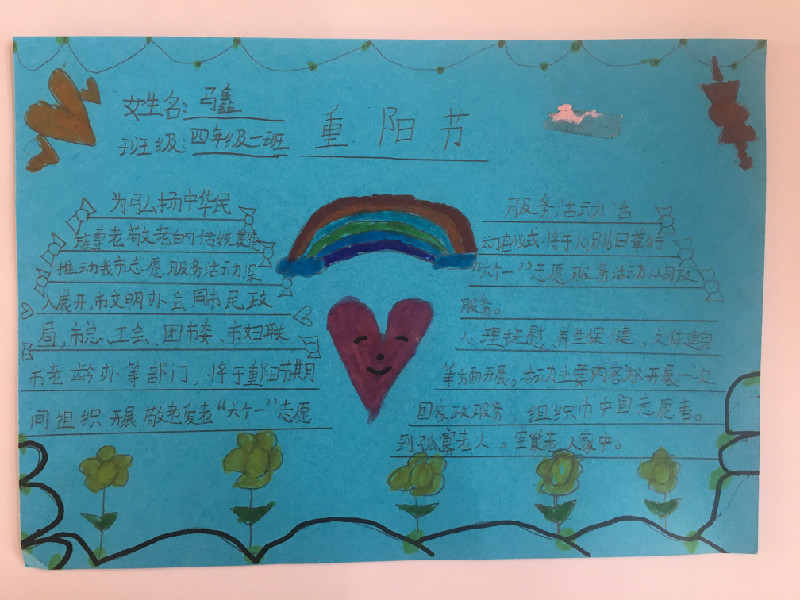 女生名：马鑫
班级：四年级二班
重阳节
为弘扬中华民
族尊老敬老的传统美德
推动我市志愿服务活动深
入展开，市文明办会同市民政
局，市总工会、团市委、市妇联
市老龄办等部门，将于重阳节期
间组织开展敬老爱老“六个一”志愿
服务活动活
动启仪式将于10月16日举行
“六个一”志愿服务活动以家政
服务。
心理抚慰、养生保健、文体
等方面开展。活动主要内容为开展一次
国家政服务，组织巾帼志愿者。
到孤寡老人。空巢老人家中。